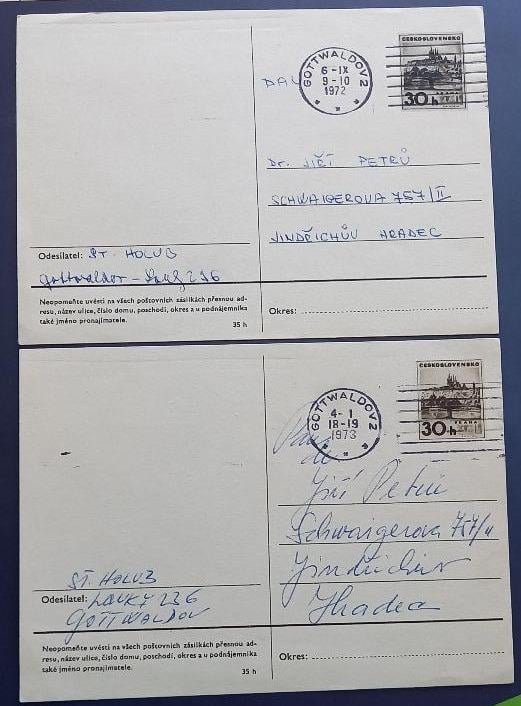 ČESKOSLOVENSKO
30 h
GOTTWALDOV 2
6 -IX
9 -10
1972
Dr. JIŘÍ PETRŮ
SCHWAIGEROVA 757/II
JINDŘICHŮV HRADEC
Odesílatel: ST. HOLUB
Gottwaldov - Louky 236
Neopomeňte uvésti na všech poštovních zásilkách přesnou ad-
resu, název ulice, číslo domu, poschodí, okres a u podnájemníka
také jméno pronajímatele.
35 h
Okres:
ČESKOSLOVENSKO
PRAHA
30 h
GOTTWALDOV 2
4- 1
18-19
1973
Pan
Jiří Petrů
Schwaigerova 757/II
Jindřichův
Hradec
ST. HOLUB
Odesílatel: LOUKY 236
GOTTWALDOV
Neopomeňte uvésti na všech poštovních zásilkách přesnou ad-
resu, název ulice, číslo domu, poschodí, okres a u podnájemníka
také jméno pronajímatele.
35 h
Okres: